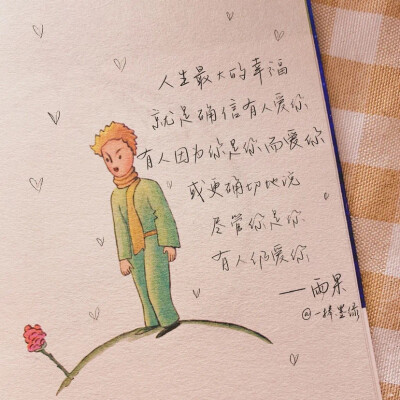 人生最大的幸福
就是确信有人爱你
有人因为你是你而爱你
或更确切地说
尽管你是你
有人仍爱你
——雨果